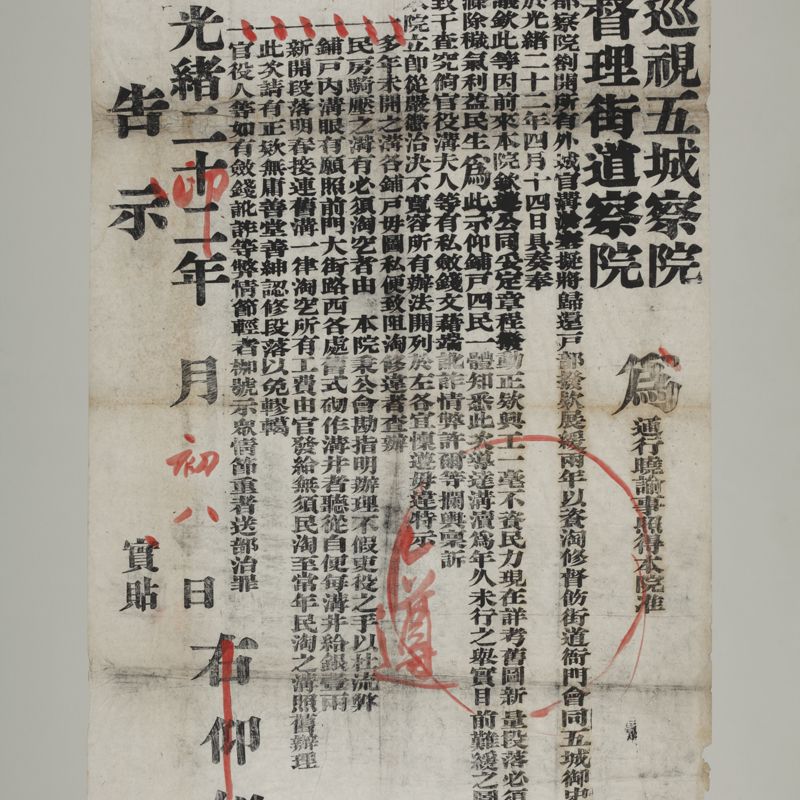 巡視五城察院
督理街道察院
為
通行曉諭事照得本院准
都察院劄開所有外城官溝
擬將歸還戶部發款展緩兩年以資淘修督飭街道衙門會同五城御史
於光緒二十二年四月十四日具奏奉
議欽此等因前來本院
公同公定章程
動正款興工一毫不資民力現在詳考舊圖新量段落必須
滌除穢氣利益民生為此示仰鋪戶四民一體知悉此次導達溝瀆為年久未行之舉實目前難緩之
致干查究倘官役溝夫人等有私斂錢文藉端訛詐情弊許爾等攔輿稟訴
本院立即從嚴懲治決不寬容所有辦法開列於左各宜懍遵毋違特示
一多年未開之溝各鋪戶毋圖私便致阻淘修違者查辦
一民房騎壓之溝有必須淘空者由 本院秉公會勘指明辦理不假吏役之手以杜流弊
一鋪戶內溝眼有願照前門大街路西各處舊式砌作溝井者聽從自便每溝井給銀壹兩
一新開段落明春接連舊溝一律淘空所有工費由官發給無須民淘至常年民淘之溝照舊辦理
一此次請有正款無庸善堂善紳認修段落以免轇轕
一官役人等如有斂錢訛詐等弊情節輕者枷號示眾情節重者送部治罪
光緒二十二年 月初八日
右仰
告示
實貼
遵